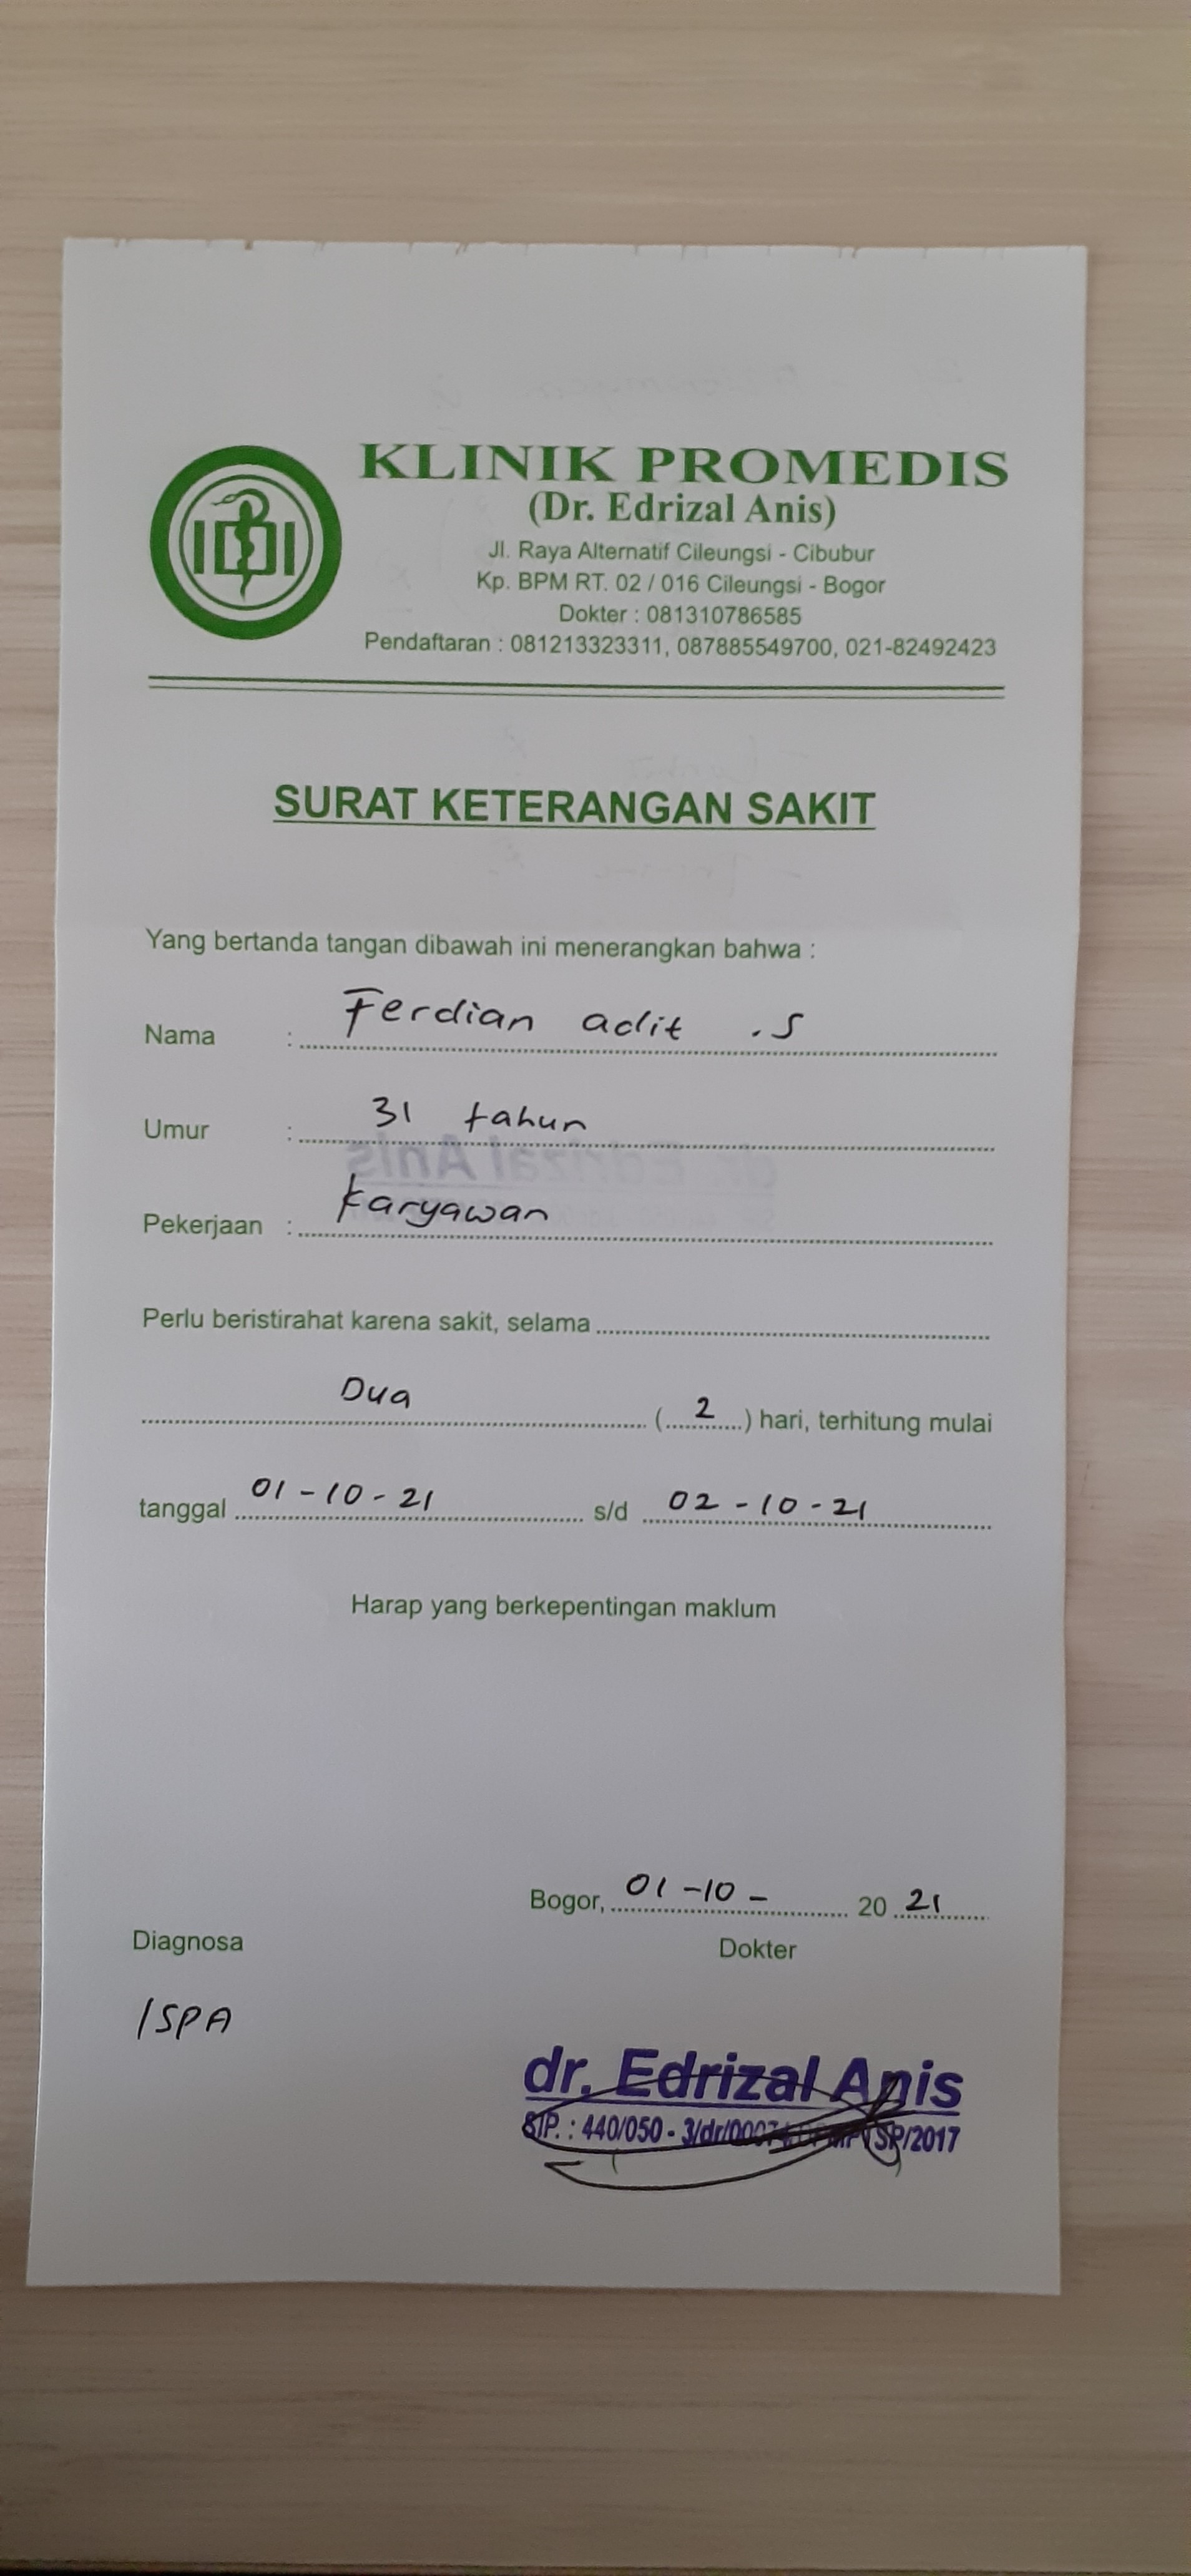 IDI
KLINIK PROMEDIS
(Dr. Edrizal Anis)
Jl. Raya Alternatif Cileungsi - Cibubur
Kp. BPM RT. 02 / 016 Cileungsi - Bogor
Dokter : 081310786585
Pendaftaran : 081213323311, 087885549700, 021-82492423
SURAT KETERANGAN SAKIT
Yang bertanda tangan dibawah ini menerangkan bahwa :
Nama : Ferdian adit .S
Umur : 31 tahun
Pekerjaan : Karyawan
Perlu beristirahat karena sakit, selama
Dua (2) hari, terhitung mulai
tanggal 01-10-21 s/d 02-10-21
Harap yang berkepentingan maklum
Bogor, 01-10- 2021
Diagnosa
Dokter
ISPA
dr. Edrizal Anis
SIP. : 440/050 - 3/dr/